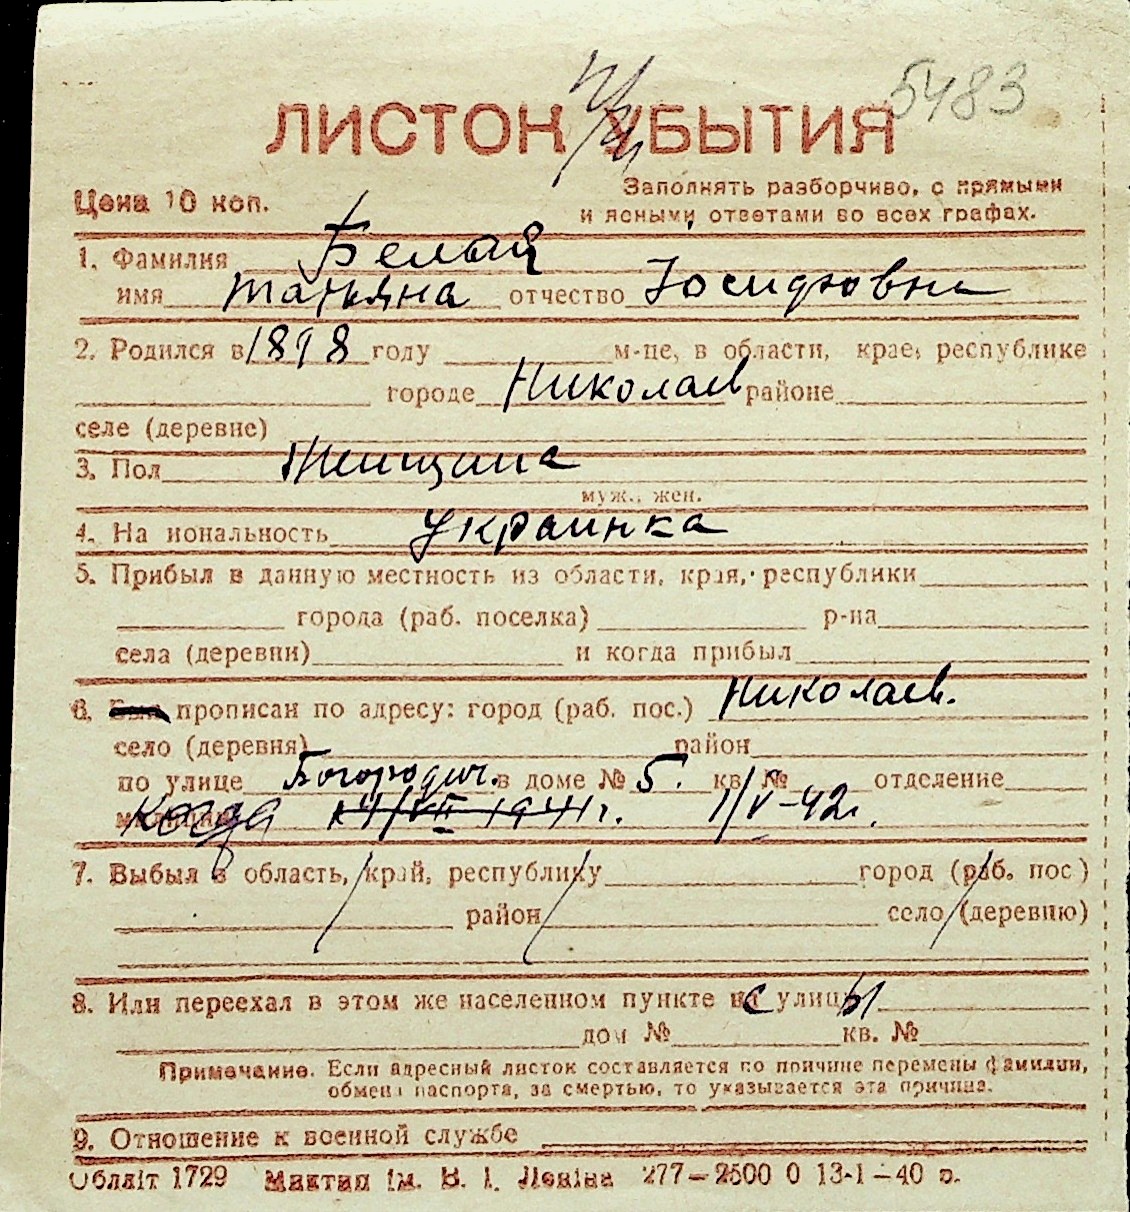 5483
ЛИСТОК УБЫТИЯ
Цена 10 коп.
Заполнять разборчиво, с прямыми
и ясными ответами во всех графах.
1. Фамилия Белая
имя Татьяна отчество Іосифовна
2. Родился в 1898 году м-це, в области, крае, республике
городе Николаев районе
селе (деревне)
3. Пол Женщина
муж., жен.
4. На иональность Украинка
5. Прибыл в данную местность из области, края, республики
города (раб. поселка) р-на
села (деревни) и когда прибыл
6. Был прописан по адресу: город (раб. пос.) Николаев.
село (деревня) район
по улице Богородич. в доме № 5. кв. № отделение
милиции Когда 14/VII 1941г. 1/V-42г.
7. Выбыл в область, край, республику город (раб. пос)
район село (деревню)
8. Или переехал в этом же населенном пункте с улицы
дом № кв. №
Примечание. Если адресный листок составляется по причине перемены фамилии,
обмена паспорта, за смертью, то указывается эта причина.
9. Отношение к военной службе
Обляіт 1729 Миктип ім. В. І. Леніна 277—2500 0 13-1—40 р.